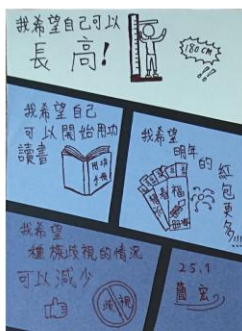 我希望自己可以
長高!
180cm
我希望自己
可以開始用功
讀書
我希望
明年
的
紅包更多!!!
福
我希望
種族歧視的情況
可以減少
歧視
25.1